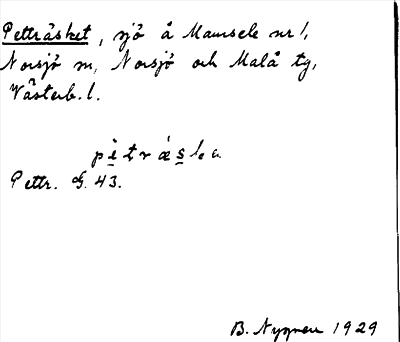 Petträsket, sjö å Mamsele nr 1,
Norsjö sn, Norsjö och Malå tg,
Västerb. l.
pìtráska
Pettr. G. 43.
B. Nygren 1929